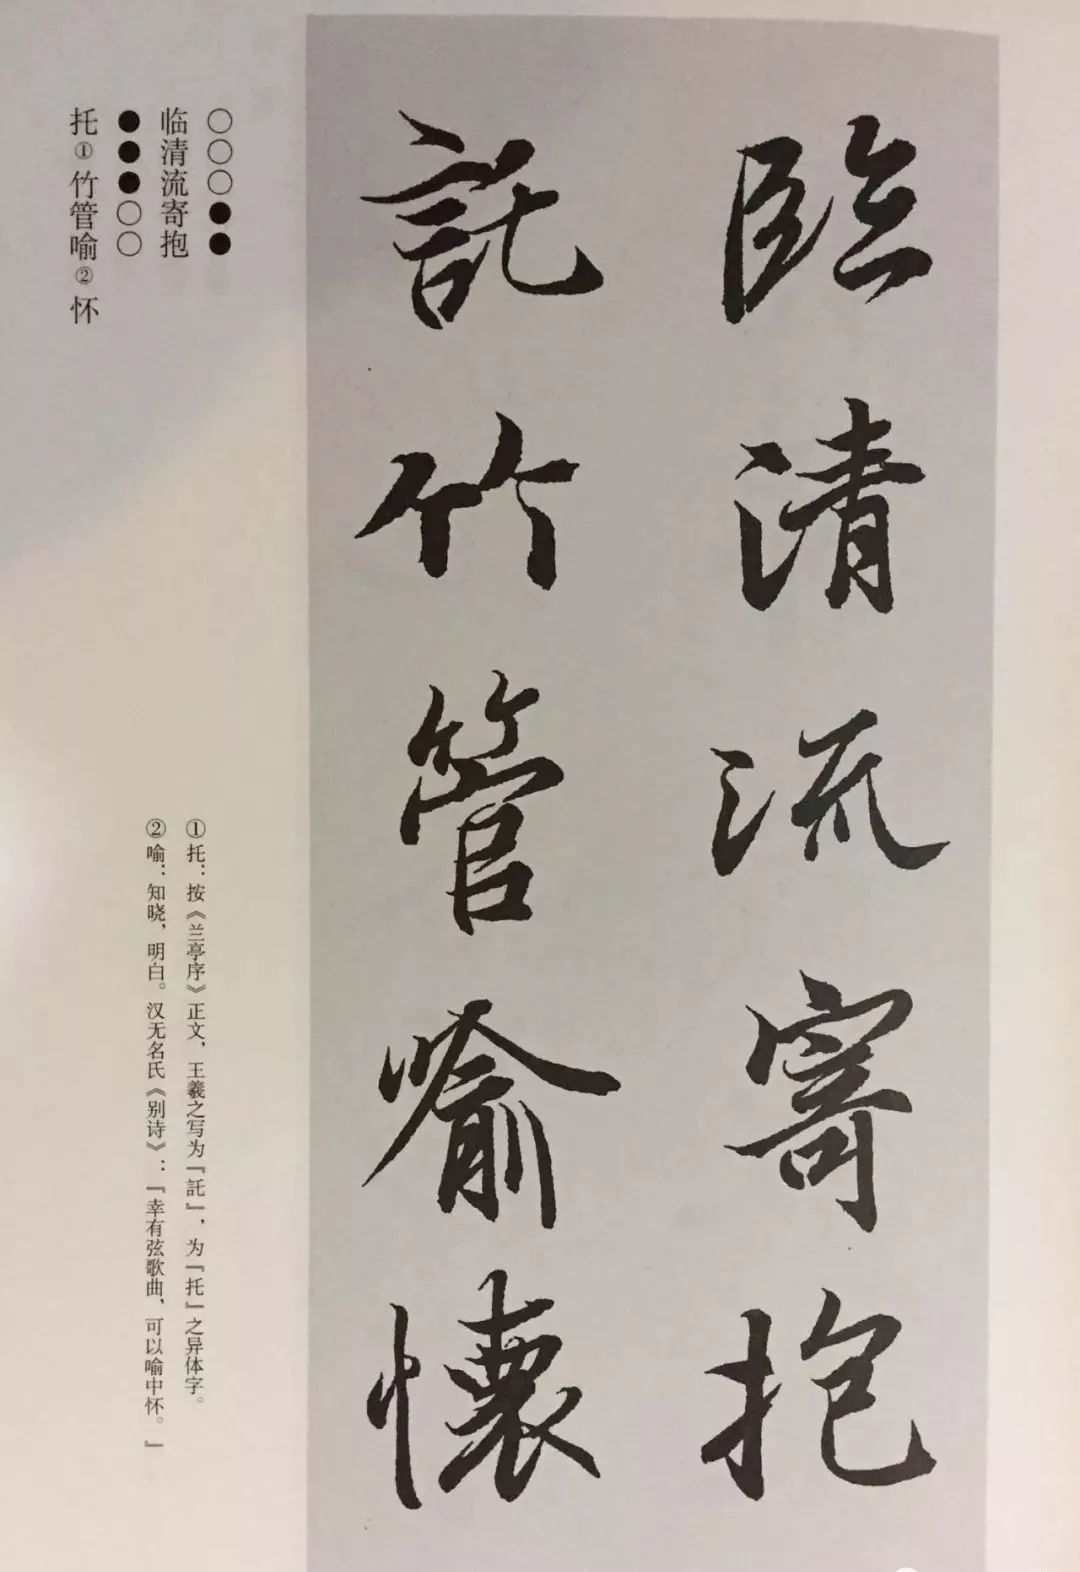 臨清流寄抱
託竹管喻懷
○○○●●
临清流寄抱
●●●○○
托①竹管喻②怀
①托：按《兰亭序》正文，王羲之写为「託」，为「托」之异体字。
②喻：知晓，明白。汉无名氏《别诗》：『幸有弦歌曲，可以喻中怀。』